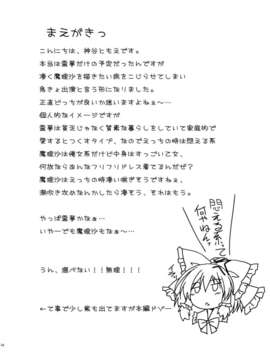 まえがきっ
こんにちは、神谷ともえです。
本当は霊夢だけの予定だったんですが
凄く魔理沙を描きたい病をこじらせてしまい
急きょ出演と言う形になりました。
正直どっちが良いか迷いますよねぇ～…
個人的なイメージですが
霊夢は貧乏じゃなく質素な暮らしをしていて家庭的で
愛するとつくすタイプ、なのでえっちの時は悶える系
魔理沙は俺女系だけど中身はすっごい乙女、
何故ならあんなフリフリドレス着てるんだぜ？
魔理沙はえっちの時凄い喘ぎそうですねぇ、
潮吹き攻めなんかしたら凄そう、それはもう。
やっぱ霊夢かなぁ～
いやーでも魔理沙もなぁ～…
うん、選べない！！無理！！！
←て事で少し紫も出てますが本編ドゾー
悶える系て
何やねん！